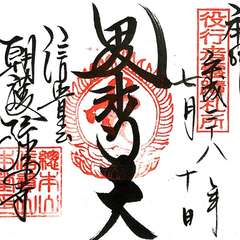 役行者霊蹟札所
奉拝
平成十八年
七月十日
毘沙門天
信貴山
朝護孫子寺